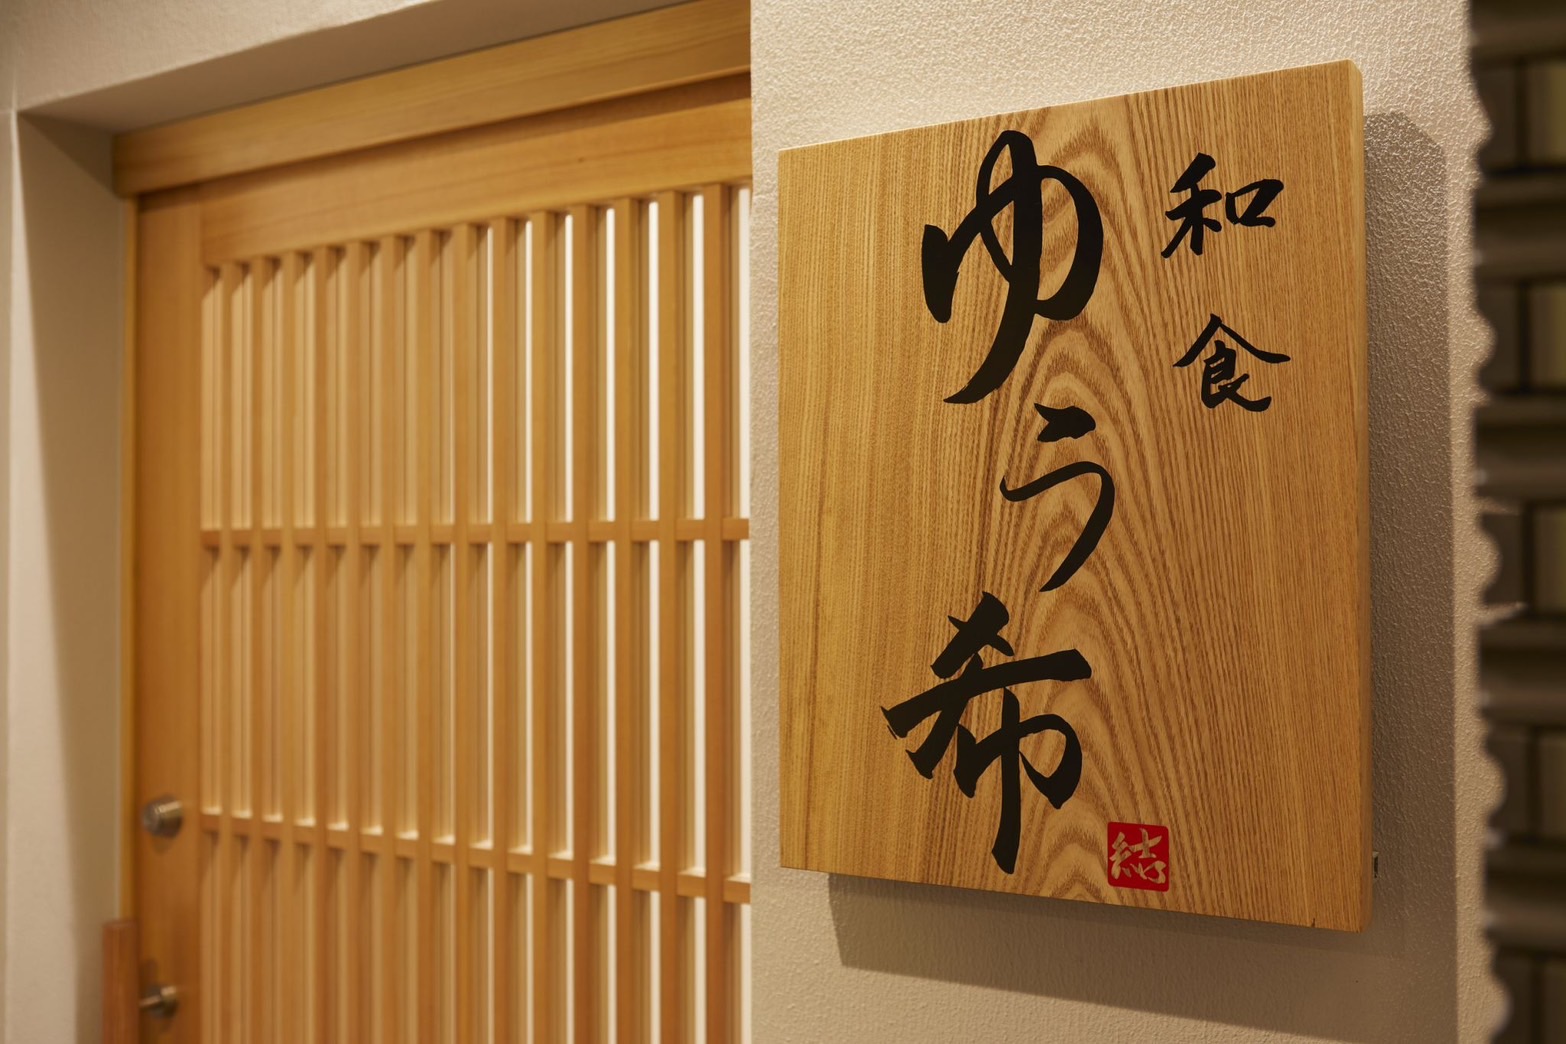 和食
ゆう希
結